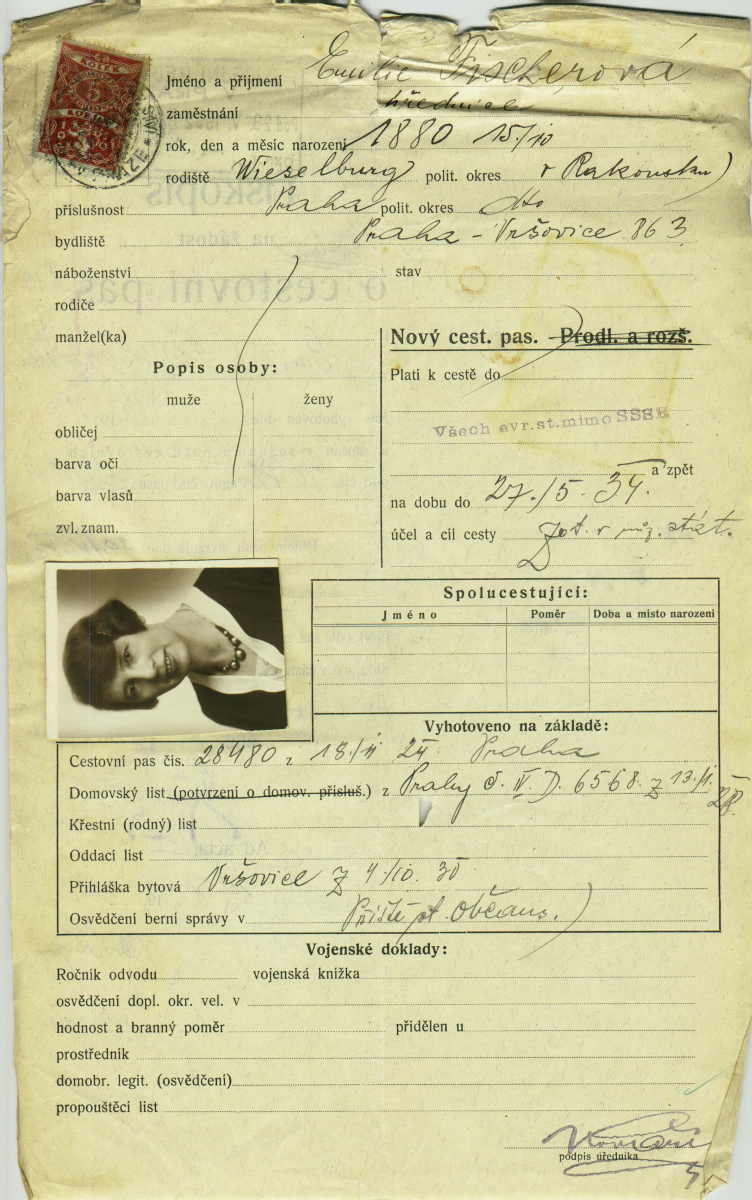 Jméno a přijmení Emilie Fischerová
zaměstnání úřednice
rok, den a měsíc narození 1880 15./10
rodiště Wieselburg polit. okres v Rakousku)
příslušnost Praha polit. okres dtto
bydliště Praha - Vršovice 863
náboženství stav
rodiče
manžel(ka)
Nový cest. pas. Prodl. a rozš.
Popis osoby:
Platí k cestě do
muže ženy
obličej
Všech evr. st. mimo SSSR
barva očí
a zpět
barva vlasů
na dobu do 27./5. 34.
zvl. znam.
účel a cíl cesty
KOLEK
Spolucestující:
Jméno Poměr Doba a místo narození
Vyhotoveno na základě:
Cestovní pas čís. 28480 z 18/ 24 Praha
Domovský list (potvrzení o domov. přísluš.) z Prahy č. IV. D. 6568. z 13./1. 28.
Křestní (rodný) list
Oddací list
Přihláška bytová Vršovice z 4/10. 30
Osvědčení berní správy v
Vojenské doklady:
Ročník odvodu vojenská knížka
osvědčení dopl. okr. vel. v
hodnost a branný poměr přidělen u
prostředník
domobr. legit. (osvědčení)
propouštěcí list
podpis úředníka